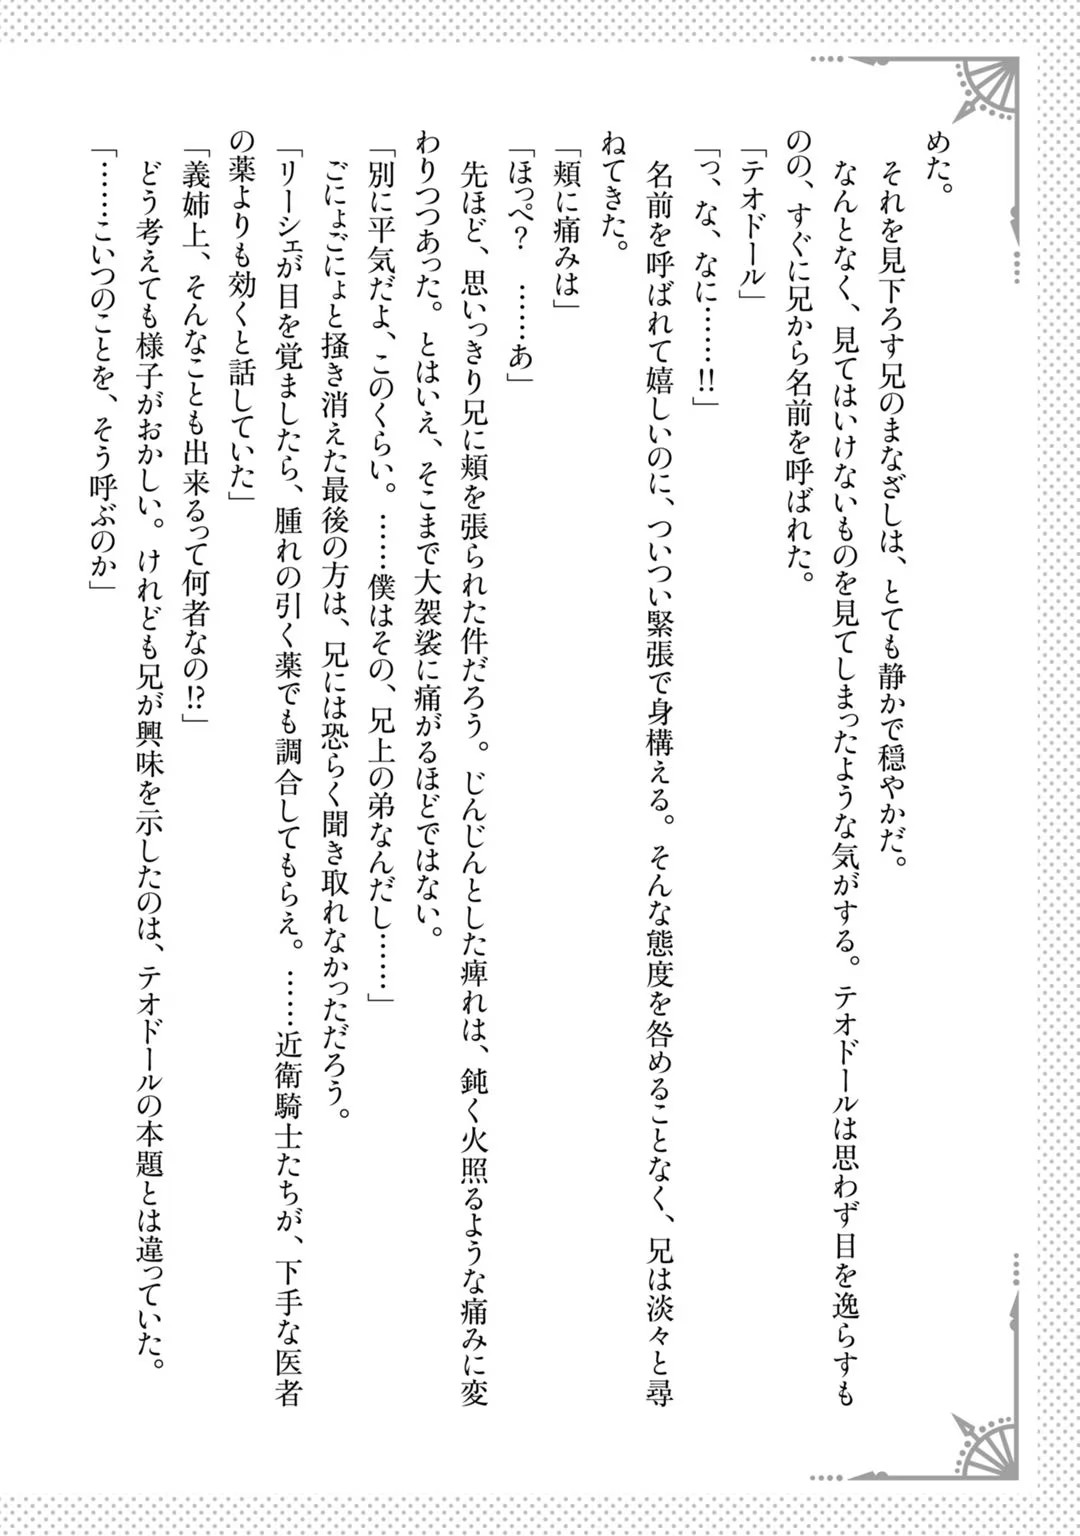 めた。
　それを見下ろす兄のまなざしは、とても静かで穏やかだ。
　なんとなく、見てはいけないものを見てしまったような気がする。テオドールは思わず目を逸らすも
のの、すぐに兄から名前を呼ばれた。
「テオドール」
「っ、な、なに……‼」
　名前を呼ばれて嬉しいのに、ついつい緊張で身構える。そんな態度を咎めることなく、兄は淡々と尋
ねてきた。
「頬に痛みは」
「ほっぺ？　……あ」
　先ほど、思いっきり兄に頬を張られた件だろう。じんじんとした痺れは、鈍く火照るような痛みに変
わりつつあった。とはいえ、そこまで大袈裟に痛がるほどではない。
「別に平気だよ、このくらい。……僕はその、兄上の弟なんだし……」
　ごにょごにょと掻き消えた最後の方は、兄には恐らく聞き取れなかっただろう。
「リーシェが目を覚ましたら、腫れの引く薬でも調合してもらえ。……近衛騎士たちが、下手な医者
の薬よりも効くと話していた」
「義姉上、そんなことも出来るって何者なの⁉」
　どう考えても様子がおかしい。けれども兄が興味を示したのは、テオドールの本題とは違っていた。
「……こいつのことを、そう呼ぶのか」